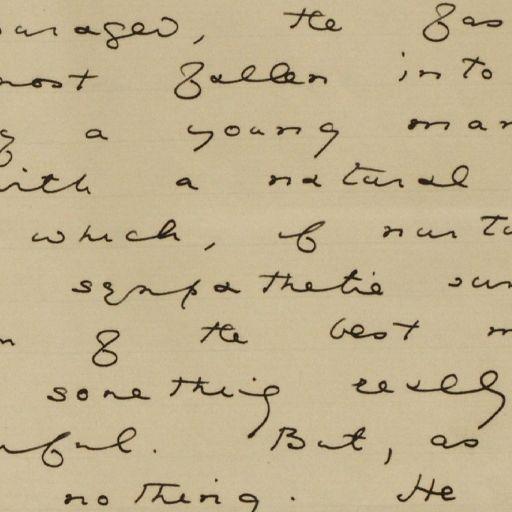 the
most fallen into
a young man
with a natural
which, if
sympathetic
of the best
something really
. But, as
nothing. He